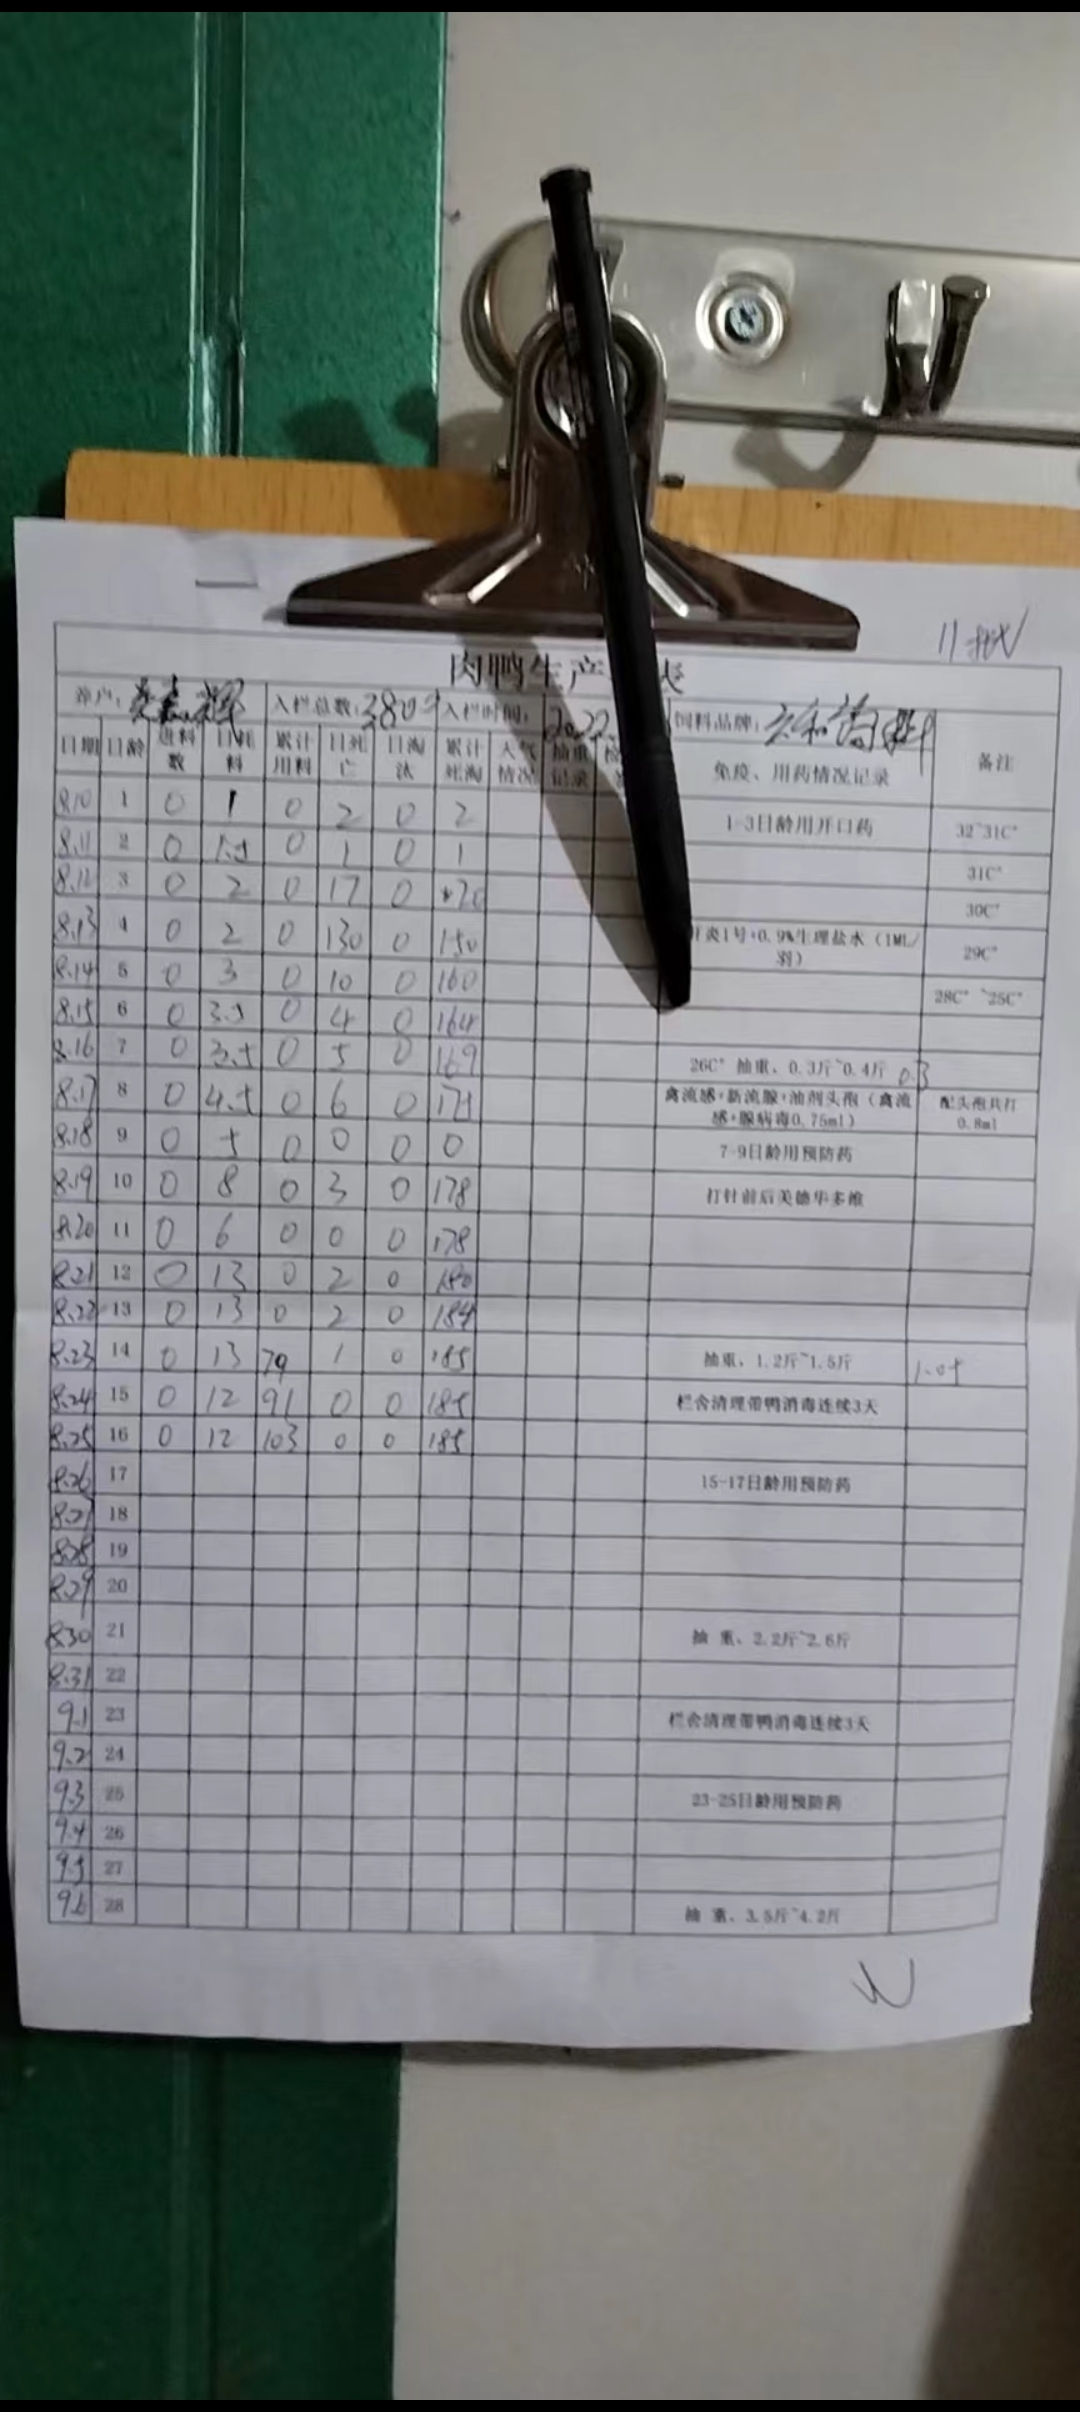 11批
肉鸭生产 表
养户: 入栏总数:3800 入栏时间: 2022 饲料品牌:
日期 日龄 进料数 日耗料 累计用料 日死亡 日淘汰 累计死淘 天气情况 抽重记录 免疫、用药情况记录 备注
8.10 1 0 1 0 2 0 2 1-3日龄用开口药 32~31C°
8.11 2 0 1.5 0 1 0 1 31C°
8.12 3 0 2 0 17 0 20 30C°
8.13 4 0 2 0 130 0 150 肝炎1号+0.9%生理盐水(1ML/羽) 29C°
8.14 5 0 3 0 10 0 160 28C°~25C°
8.15 6 0 3.5 0 4 0 164
8.16 7 0 3.5 0 5 0 169 26C° 抽重、0.3斤~0.4斤 0.3
8.17 8 0 4.5 0 6 0 175 禽流感+新流腺+油剂头孢(禽流感+腺病毒0.75ml) 配头孢共打0.8ml
8.18 9 0 5 0 0 0 0 7-9日龄用预防药
8.19 10 0 8 0 3 0 178 打针前后美德华多维
8.20 11 0 6 0 0 0 178
8.21 12 0 13 0 2 0 180
8.22 13 0 13 0 2 0 184
8.23 14 0 13 79 1 0 185 抽重、1.2斤~1.5斤 1.05
8.24 15 0 12 91 0 0 185 栏舍清理带鸭消毒连续3天
8.25 16 0 12 103 0 0 185
8.26 17 15-17日龄用预防药
8.27 18
8.28 19
8.29 20
8.30 21 抽 重、2.2斤~2.6斤
8.31 22
9.1 23 栏舍清理带鸭消毒连续3天
9.2 24
9.3 25 23-25日龄用预防药
9.4 26
9.5 27
9.6 28 抽 重、3.5斤~4.2斤